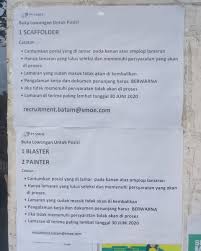 Buka Lowongan Untuk Posisi
1 SCAFFOLDER
Catatan :
• Cantumkan posisi yang di lamar pada kanan atas amplop lamaran
• Hanya lamaran yang lulus seleksi dan memenuhi persyaratan yang akan
di proses
• Lamaran yang sudah masuk tidak akan di kembalikan
• Pengalaman kerja dan dokumen penunjang harus BERWARNA
• Jika ada dokumen yang tidak memenuhi persyaratan tidak akan di
proses
• Lamaran di terima paling lambat tanggal 30 JUNI 2020
recruitment.batam@smoe.com
Buka Lowongan Untuk Posisi
1 BLASTER
2 PAINTER
• Cantumkan posisi yang di lamar pada kanan atas amplop lamaran
• Hanya lamaran yang lulus seleksi dan memenuhi persyaratan yang akan
di proses
• Lamaran yang sudah masuk tidak akan di kembalikan
• Pengalaman kerja dan dokumen penunjang harus BERWARNA
• Jika ada dokumen yang tidak memenuhi persyaratan tidak akan di
proses
• Lamaran di terima paling lambat tanggal 30 JUNI 2020